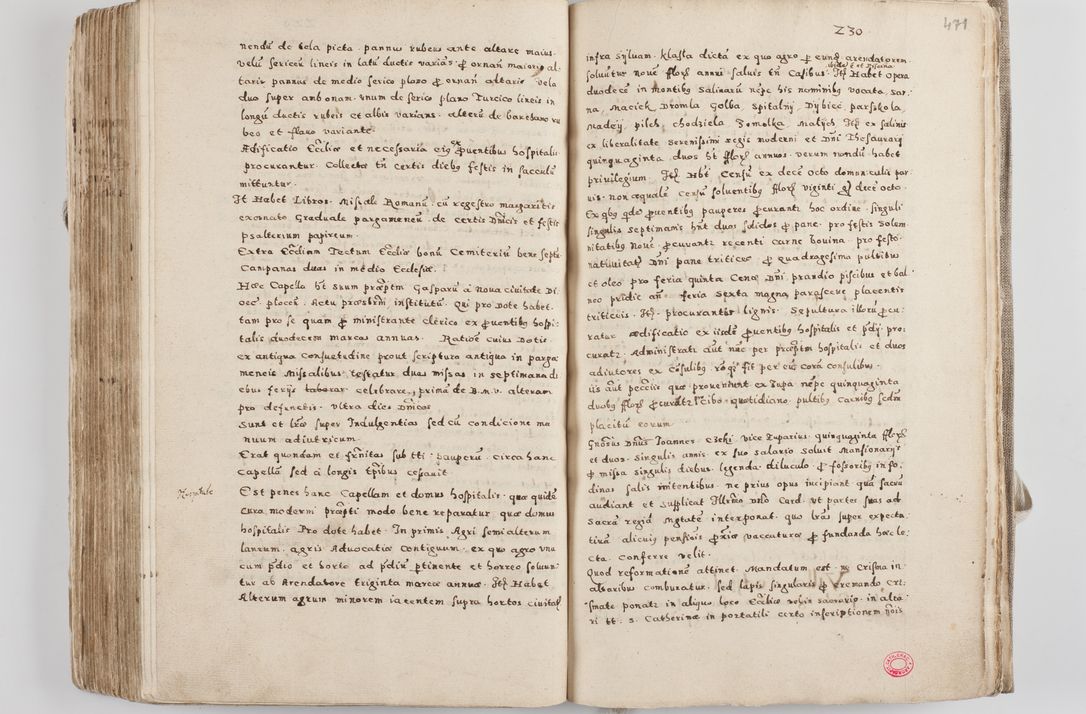 nendũ de tela picta. pannus rubeus ante altare maius.
velũ sericeũ lineis in latũ ductis varians. ꝓ ornañ maioris al-
taris pannus de medio serico plaso ꝓ ornañ altaris. vela
duo super ambonam. vnum de serico plano Turcico lineis in
longũ ductis rubeis et albis varians. alterũ de barchano ru
beo et flavo variante.
Ædificatio Eccłiæ et necessaria eiꝰ ex ꝓuentibus hospitalis
procurantur. Collectæ tñ certis diebꝰ festis in sacculũ
mittuntur.
It Habet Libros. Missale Romanũ. cũ regestro margaritis
exornato Graduale pargameneũ. de certis Dñicis et festis
psalterium papireum.
Extra Eccłiam Tectum Eccłiæ bonũ Cemiteriũ bene septũ
Campanas duas in medio Ecclesiæ.
Hæc Capella ht suum præpłm Gasparũ à Noua ciuitate Di
oeć. plocen. Actu præsbrm̃ institutũ. Qui pro Dote habet.
tam pro se quam ꝓ ministrante clerico ex ꝓuentibꝰ hospi-
talis duodecem marcas annuas. Ratioē cuius Dotis
ex antiqua Consuetudine prout scriptura antiqua in parga
meneis Missalibus testatur duas missas in septimana di
ebus ferijs celebrare, primã de B.M.V. alteram
pro defunctis. vltra dies Dñicos
Sunt et łræ super Indulgentias sed cũ condicione ma
nuum adiutricum.
Erat quondam et fr̃nitas sub tti. pauperũ. circa hanc
Capellã sed à longis tp̃ibus cessauit.
Hospitale
Est penes hanc Capellam et domus hospitalis. quæ quidẽ
cura moderni præpłi modo bene reparatur. quæ domus
hospitalis Pro dote habet. In primis. Agri semialterum
laneum. agris Aduocatiæ contiguum. ex quo agro vna
cum p̃dio et horto ad p̃diũ ꝑtinente et horreo soluun-
tur ab Arendatore triginta marcæ annuæ. Itꝫ Habet
Alterum agrum minorem iacentem supra hortos ciuitaꝭ
471
230
infra syluam. klasta dictã ex quo agro ꝑ eundẽ arendatorem
soluũtur nouẽ fflorꝭ annui. saluis tñ Casibus. Itꝫ Habet opera
duodecẽ in Montibꝰ Salinarũ nẽpe his nominibꝰ vocata, sar-
na, Maciek Dromla Golba, Spitalny, Dybiec, parskola,
Madej, pilch, chodziela Zomolka Malych Itꝫ ex salinis
ex liberalitate Serenissimi Regis moderni et Dñi Thesaurarij
quinquaginta duos ht fflorꝭ annuos. verum nondũ habet
priuilegium. Itꝫ Hbt Censũ ex decẽ octo domunculis par-
uis. non æqualẽ censũ soluentibꝰ. fflorꝭ viginti decẽ octo.
Ex qbꝰ qdẽ ꝓuentibꝰ pauperes ꝓcurantr hoc ordine. singuli
singulis septimanis hñt duos solidos ꝓ pane. pro festis solem
nitatibꝰ Nouẽ ꝓcurantr recenti carne bouina. pro festo
natiuitatꝭ Dñi pane triticeo. ꝓ quadragesima pultibus
et oleo pro feria quinta Cenæ Dñi prandio piscibus et bal
neo pridie añ. feria sexta magna parasceue placentis
triticeis. Itꝫ. procurantur lignis. Sepultura illorũ ꝓcu-
ratur. ædificatio ex ijsdẽ ꝓuentibꝰ hospitalis et p̃dij pro-
curatr. Administratr aut̃ nũc per præpłm hospitalis et duos
adiutores ex cõsulibꝰ fit per eũ corã consulibus.
ijs aut̃ pecciis quæ proueniunt ex Zupa nẽpe quinquaginta
duobꝰ fflorꝭ ꝓcurantr cibo quotidiano. pultibꝰ carnibꝰ secũdũ
placitũ eorum.
Gñosus Dñus Joannes. Czeki. Vice Zuparius. quinquaginta fflorꝭ
et duos. singulis annis. ex suo salario soluit Mansionarijs
ꝓ missa singulis diebus. legenda diluculo. ꝓ fossoribꝰ in fo-
dinas salis intentibus. ne prius opus incipiant quã sacrũ
audiant et supplicat Illrmo Dño Card. vt partes suas ad
Sacrã regiã Mgtatẽ interponat. quo łras super expecta
tiuã alicuiꝰ pensiois ꝓximæ vaccaturæ ꝓ fundanda hac le-
cta. conferre velit.
Quod reformationẽ attinet. Mandatum est. ne Crisma in
altaribus comburatur. sed lapis singularis ꝓ cremando cri-
smate ponatr in aliquo loco Eccłiæ sacrario. in alta-
ri tt. S. Catherinæ in portatili certo inscriptionem